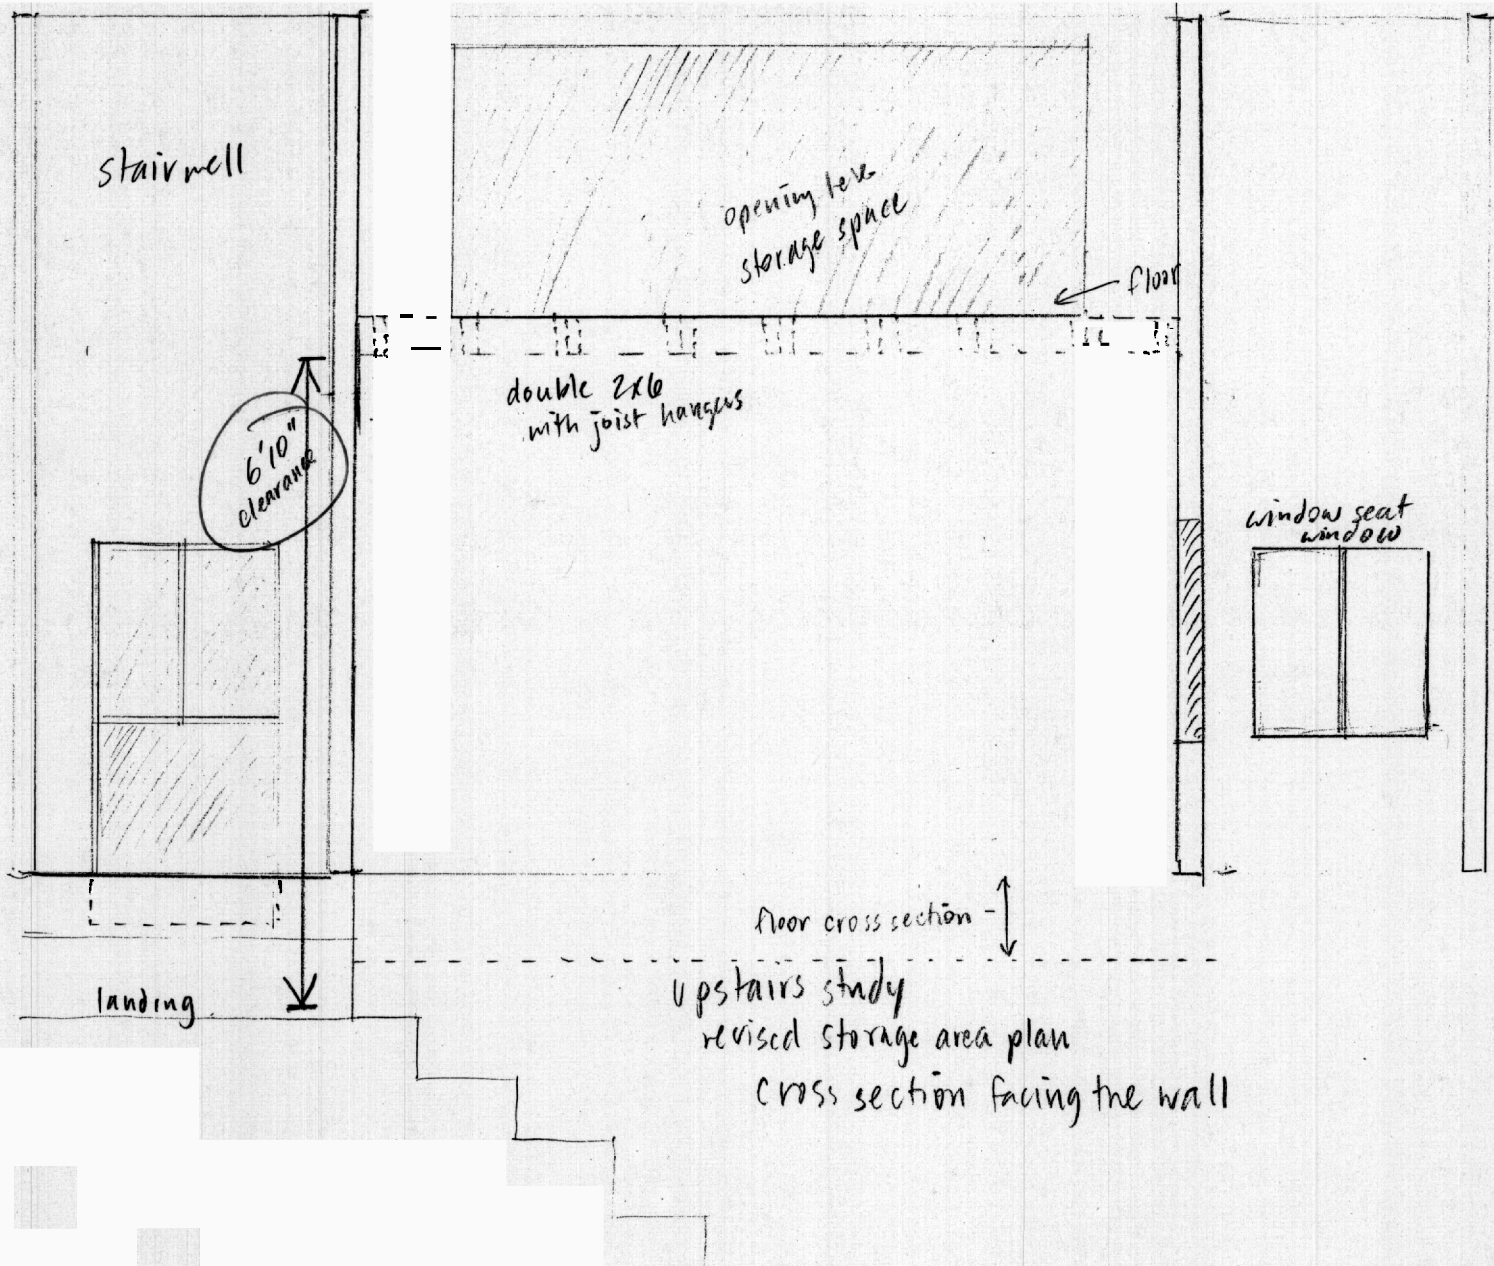 stairwell
opening
storage space
floor
double 2x6
with joist hangers
6'10"
clearance
window seat
window
floor cross section
landing
upstairs study
revised storage area plan
cross section facing the wall